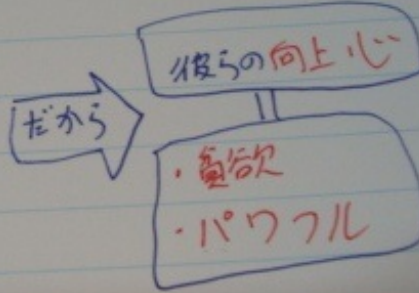 だから
彼らの向上心
・貪欲
・パワフル